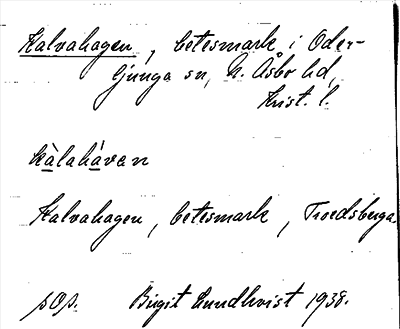 Kalvahagen, betesmark i Oder-
ljunga sn, N. Åsbo hd,
Krist. l.
kàlahàven
Kalvahagen, betesmark, Troedsberga.
pOp. Birgit Lundkvist 1938.